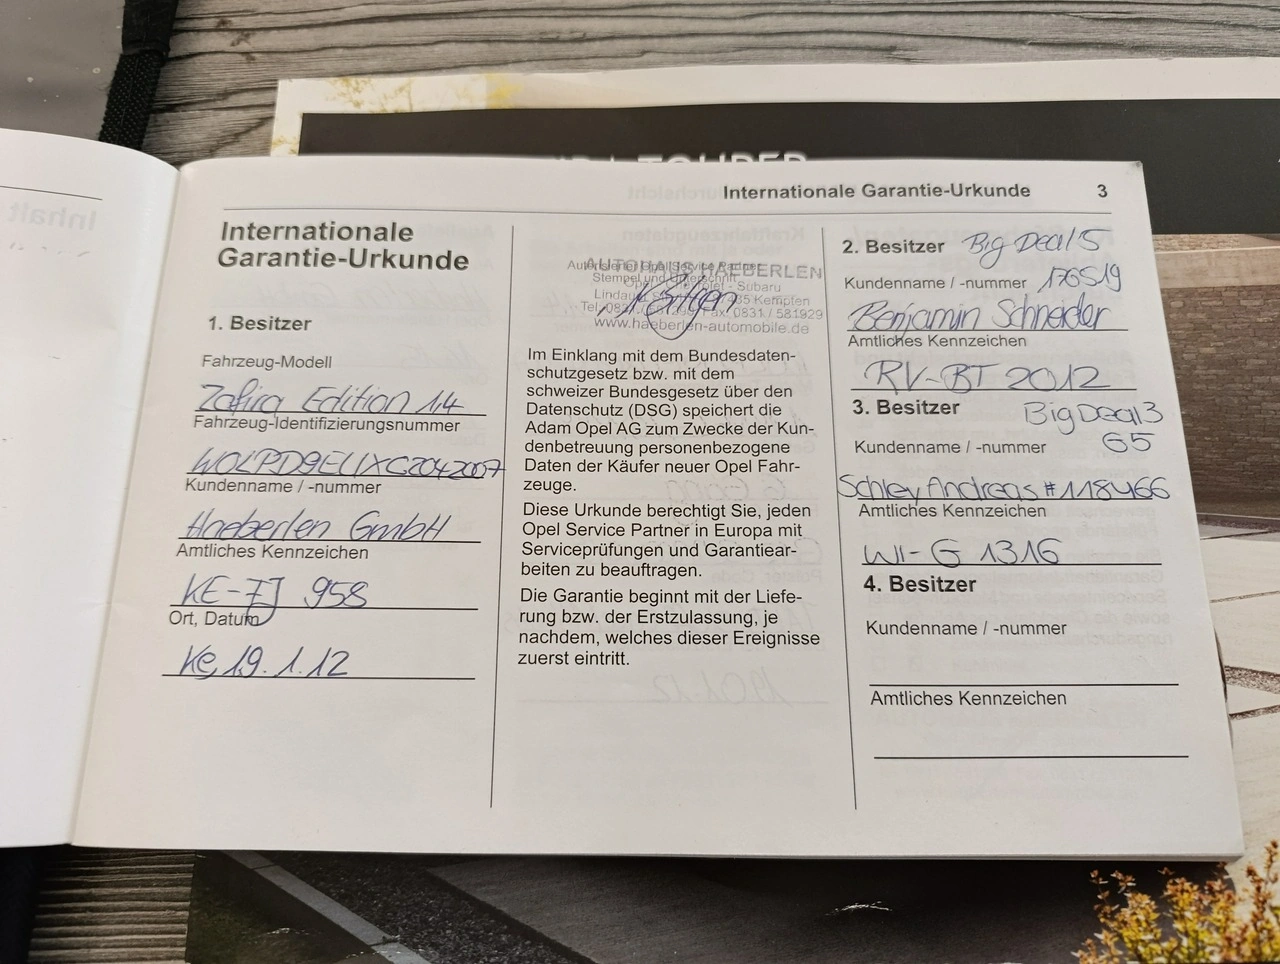 Internationale Garantie-Urkunde 3
Internationale
Garantie-Urkunde
1. Besitzer
Fahrzeug-Modell
Zafira Edition 1,4
Fahrzeug-Identifizierungsnummer
Kundenname / -nummer
Haeberlen GmbH
Amtliches Kennzeichen
958
Ort, Datum
Ke, 19.1.12
Autorisierter Opel Service Partner
AUTOHAUS HAEBERLEN
Stempel und Unterschrift
Subaru
Kempten
Fax: 0831 / 581929
www.haeberlen-automobile.de
Im Einklang mit dem Bundesdaten-
schutzgesetz bzw. mit dem
schweizer Bundesgesetz über den
Datenschutz (DSG) speichert die
Adam Opel AG zum Zwecke der Kun-
denbetreuung personenbezogene
Daten der Käufer neuer Opel Fahr-
zeuge.
Diese Urkunde berechtigt Sie, jeden
Opel Service Partner in Europa mit
Serviceprüfungen und Garantiear-
beiten zu beauftragen.
Die Garantie beginnt mit der Liefe-
rung bzw. der Erstzulassung, je
nachdem, welches dieser Ereignisse
zuerst eintritt.
2. Besitzer Big Deal 5
Kundenname / -nummer 176519
Benjamin Schneider
Amtliches Kennzeichen
RV-BT 2012
3. Besitzer Big Deal 3
Kundenname / -nummer 65
Schley Andreas #118466
Amtliches Kennzeichen
WI-G 1316
4. Besitzer
Kundenname / -nummer
Amtliches Kennzeichen
Inhalt